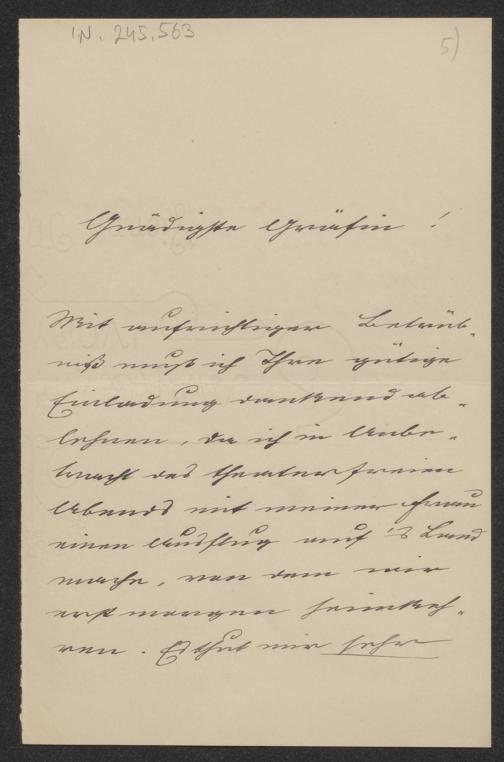 I.N. 245.563
5)
Gnädigste Gräfin!
Mit aufrichtiger Betrüb-
niß muß ich Ihre gütige
Einladung dankend ab-
lehnen, da ich in Anbe-
tracht des theaterfreien
Abends mit meiner Frau
einen Ausflug auf's Land
mache, von dem wir
erst morgen heimkeh-
ren. Es thut mir sehr